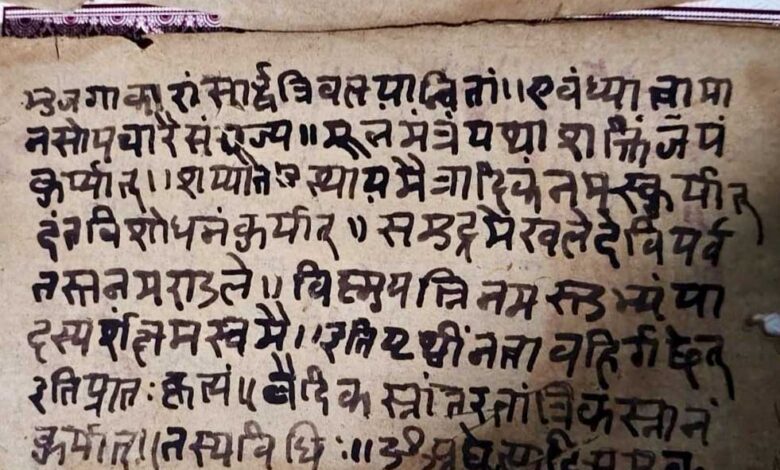 भुजगाकारां सार्द्धत्रिवलयान्वितां॥ एवंध्यात्वामा
नसोपचारैसंपूज्य॥ मूलमंत्रंयथाशक्तिजपं
कुर्य्यात्॥ शय्यात उत्थायमैत्रादिकंनमस्कुर्यात्
दंतविशोधनंकुर्यात्॥ समुद्रमेखलेदेविपर्व
तस्तनमण्डले॥ विष्णुपत्निनमस्तुभ्यंपा
दस्पर्शंक्षमस्वमे॥ इतिपृथ्वींनत्वावहिर्गछेत्
इतिप्रातःकृत्यं॥ वैदिकस्नांतरतांत्रिकंस्नानं
कुर्यात्॥ तस्यविधिः॥